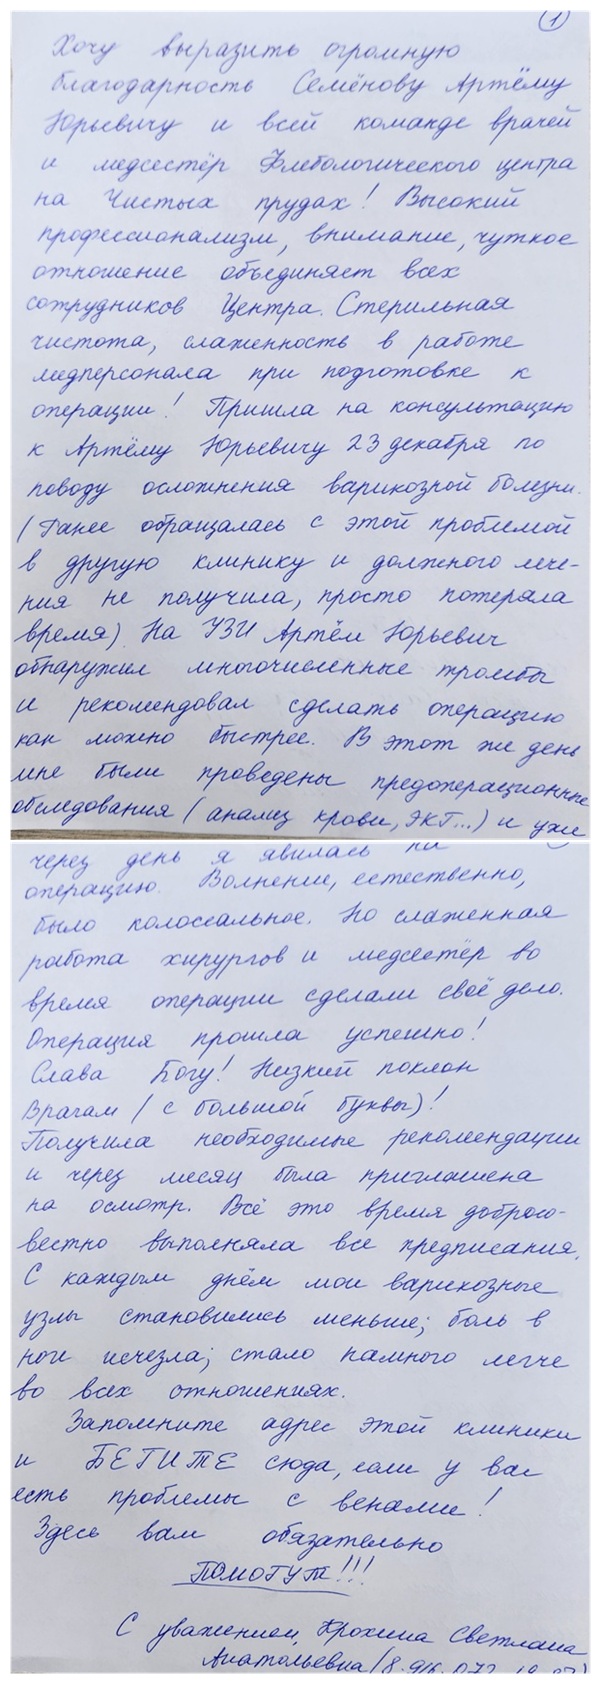 1
Хочу выразить огромную
благодарность Семёнову Артёму
Юрьевичу и всей команде врачей
и медсестёр Флебологического центра
на Чистых прудах! Высокий
профессионализм, внимание, чуткое
отношение объединяет всех
сотрудников Центра. Стерильная
чистота, слаженность в работе
медперсонала при подготовке к
операции! Пришла на консультацию
к Артёму Юрьевичу 23 декабря по
поводу осложнения варикозной болезни.
(Ранее обращалась с этой проблемой
в другую клинику и должного лече-
ния не получила, просто потеряла
время). На УЗИ Артём Юрьевич
обнаружил многочисленные тромбы
и рекомендовал сделать операцию
как можно быстрее. В этот же день
мне были проведены предоперационные
обследования (анализ крови, ЭКГ...) и уже
через день я явилась на
операцию. Волнение, естественно,
было колоссальное. Но слаженная
работа хирургов и медсестёр во
время операции сделали своё дело.
Операция прошла успешно!
Слава Богу! Низкий поклон
Врачам (с большой буквы)!
Получила необходимые рекомендации
и через месяц была приглашена
на осмотр. Всё это время добросо-
вестно выполняла все предписания.
С каждым днём мои варикозные
узлы становились меньше; боль в
ноги исчезла; стало намного легче
во всех отношениях.
Запомните адрес этой клиники
и БЕГИТЕ сюда, если у вас
есть проблемы с венами!
Здесь вам обязательно
ПОМОГУТ!!!
С уважением, Светлана
Анатольевна (8.